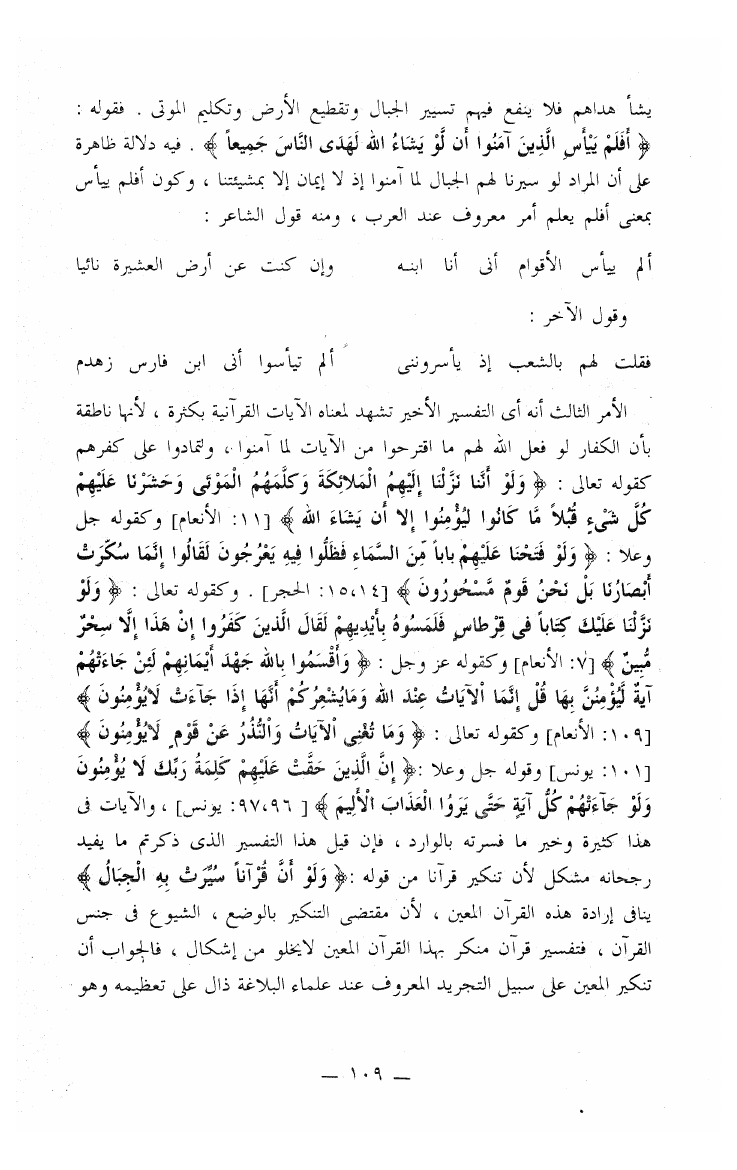 يشأ هداهم فلا ينفع فيهم تسيير الجبال وتقطيع الأرض وتكليم الموتى . فقوله :
﴿ أَفَلَمْ يَيْأَسِ الَّذِينَ آمَنُوا أَن لَّوْ يَشَاءُ الله لَهَدَى النَّاسَ جَمِيعاً ﴾ . فيه دلالة ظاهرة
على أن المراد لو سيرنا لهم الجبال لما آمنوا إذ لا إيمان إلا بمشيئتنا ، وكون أفلم ييأس
بمعنى أفلم يعلم أمر معروف عند العرب ، ومنه قول الشاعر :
ألم ييأس الأقوام أنى أنا ابنـه وإن كنت عن أرض العشيرة نائيا
وقول الآخر :
فقلت لهم بالشعب إذ يأسروننى ألم تيأسوا أنى ابن فارس زهدم
الأمر الثالث أنه أى التفسير الأخير تشهد لمعناه الآيات القرآنية بكثرة ، لأنها ناطقة
بأن الكفار لو فعل الله لهم ما اقترحوا من الآيات لما آمنوا ، ولتمادوا على كفرهم
كقوله تعالى : ﴿ وَلَوْ أَنَّنا نَزَّلْنَا إِلَيْهِمُ الْمَلائِكَةَ وَكَلَّمَهُمُ الْمَوْتَى وَحَشَرْنَا عَلَيْهِمْ
كُلَّ شَىْءٍ قُبُلاً مَّا كَانُوا لِيُؤْمِنُوا إلا أَن يَشَاءَ الله ﴾ [١١: الأنعام] وكقوله جل
وعلا : ﴿ وَلَوْ فَتَحْنَا عَلَيْهِمْ باباً مِّنَ السَّمَاءِ فَظَلُّوا فِيهِ يَعْرُجُونَ لَقَالُوا إِنَّمَا سُكِّرَتْ
أَبْصَارُنَا بَلْ نَحْنُ قَوْمٌ مَّسْحُورُونَ ﴾ [١٥،١٤: الحجر] . وكقوله تعالى : ﴿ وَلَوْ
نَزَّلْنَا عَلَيْكَ كِتَاباً فى قِرْطاسٍ فَلَمَسُوهُ بِأَيْدِيهِمْ لَقَالَ الَّذينَ كَفَرُوا إنْ هَذَا إِلَّا سِحْرٌ
مُّبِينٌ ﴾ [٧: الأنعام] وكقوله عز وجل : ﴿ وَأَقْسَمُوا بِالله جَهْدَ أَيْمَانِهِمْ لَئِنْ جَاءَتْهُمْ
آيةٌ لَّيُؤْمِنُنَّ بِهَا قُلْ إِنَّمَا اْلآيَاتُ عِنْدَ الله وَمَايُشْعِرُكُمْ أَنَّهَا إِذَا جَآءَتْ لَايُؤْمِنُونَ ﴾
[١٠٩: الأنعام] وكقوله تعالى : ﴿ وَمَا تُغْنِى اْلآيَاتُ وَالنُّذُرُ عَنْ قَوْمٍ لَايُؤْمِنُونَ ﴾
[١٠١: يونس] وقوله جل وعلا :﴿ إِنَّ الَّذِينَ حَقَّتْ عَلَيْهِمْ كَلِمَةُ رَبِّكَ لَا يُؤْمِنُونَ
وَلَوْ جَآءَتْهُمْ كُلُّ آيَةٍ حَتَّى يَرَوُا الْعَذَابَ الْأَلِيمَ ﴾ [ ٩٧،٩٦: يونس] ، والآيات فى
هذا كثيرة وخير ما فسرته بالوارد ، فإن قيل هذا التفسير الذى ذكرتم ما يفيد
رجحانه مشكل لأن تنكير قرآنا من قوله :﴿ وَلَوْ أَنَّ قُرْآناً سُيِّرَتْ بِهِ الْجِبَالُ ﴾
ينافى إرادة هذه القرآن المعين ، لأن مقتضى التنكير بالوضع ، الشيوع فى جنس
القرآن ، فتفسير قرآن منكر بهذا القرآن المعين لايخلو من إشكال ، فالجواب أن
تنكير المعين على سبيل التجريد المعروف عند علماء البلاغة ذال على تعظيمه وهو
— ١٠٩ —